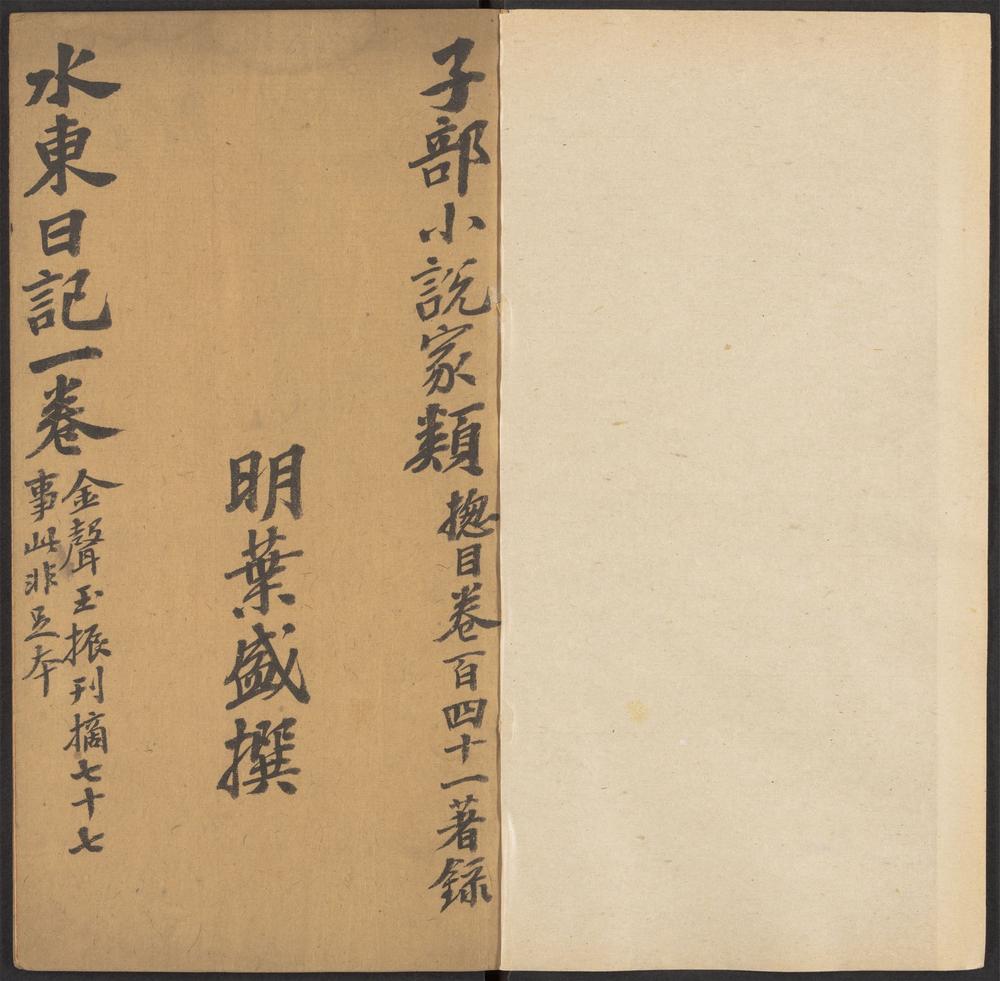 子部小說家類 揔目卷百四十一著錄
明葉盛撰
水東日記一卷
金聲玉振刊摘七十七
事此非足本